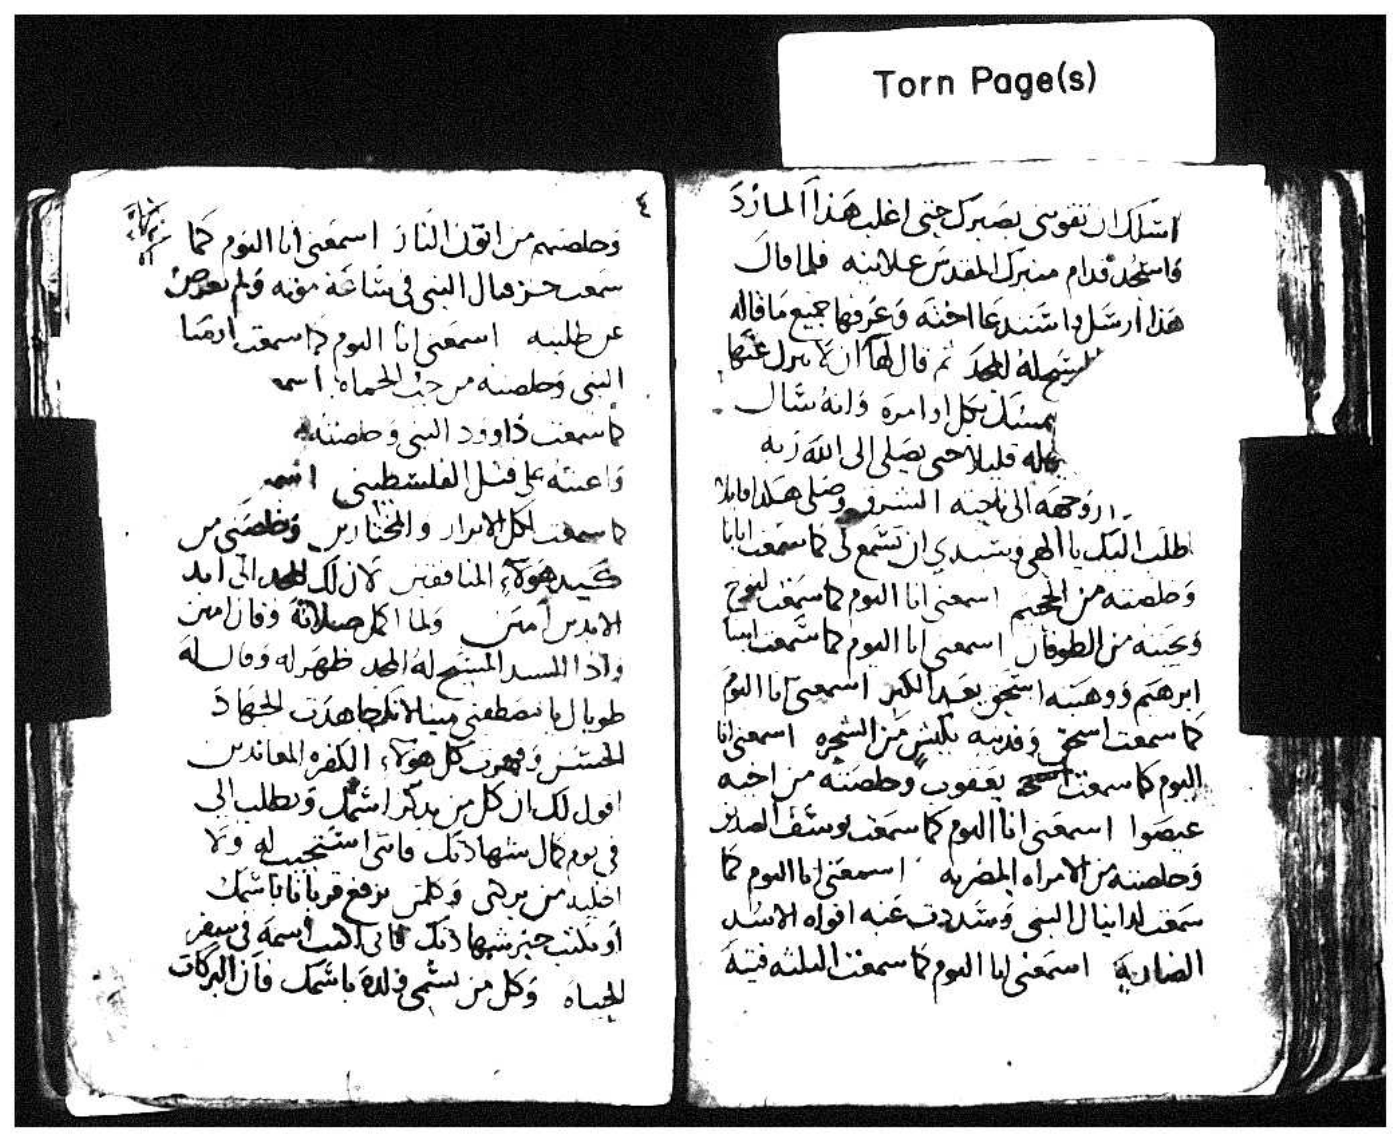 Torn Page(s)
اسلك ان تقويني بصبرك حتى اغلب هذا المارد
واسجد قدام منبرك المقدس علانيه فلما قال
هذا ارسل استدعا اخته وعرفها جميع ما قاله
المسيح له المجد ثم قال لها ان لا
يمسك بكل اوامره وانه سال
قليلا حتى يصلي الى الله ربه
وجهه الى ناحيه الشرق وصلى هكذا قايلا
اطلب اليك يا الهي وسيدي ان تسمع لي كما سمعت ابانا
وخلصته من الجحيم اسمعني انا اليوم كما سمعت لنوح
ونجيته من الطوفان اسمعني انا اليوم كما سمعت ابينا
ابرهيم ووهبته اسحق بعد الكبر اسمعني انا اليوم
كما سمعت اسحق وفديته بكبش من الشجره اسمعني انا
اليوم كما سمعت يعقوب وخلصته من اخيه
عيصوا اسمعني انا اليوم كما سمعت يوسف الصديق
وخلصته من الامراه المصريه اسمعني انا اليوم كما
سمعت لدانيال النبي وسددت عنه افواه الاسد
الضاريه اسمعني انا اليوم كما سمعت الثلثه فتيه
٤
وخلصتهم من اتون النار اسمعني انا اليوم كما
سمعت حزقيال النبي في ساعة موته ولم تعرض
عن طلبته اسمعني انا اليوم كما سمعت ارميا
النبي وخلصته من جب الحماه اسم
كما سمعت داوود النبي وخلصته
واعنته على قتل الفلسطيني اسم
كما سمعت لكل الابرار والمختارين وخلصني من
كيد هولاء المنافقين لان لك المجد الى ابد
الابدين امين ولما اكمل صلاته وقال امين
واذا السيد المسيح له المجد ظهر له وقال له
طوباك يا مصطفي مينا لانك جاهدت الجهاد
الحسن وقهرت كل هولاء الكفره المعاندين
اقول لك ان كل من يذكر اسمك ويطلب الي
في يوم كمال شهادتك فانني استجيب له ولا
اخليه من بركتي وكلمن يرفع قربانا باسمك
او يكتب خبر شهادتك فاني اكتب اسمه في سفر
الحياه وكل من يسمي ولده باسمك فان البركات